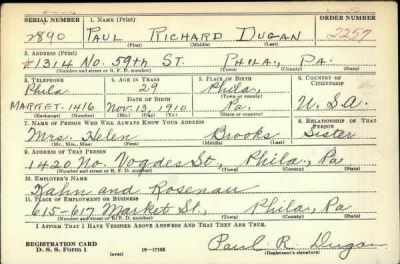 SERIAL NUMBER 1. NAME (Print) ORDER NUMBER
2890 PAUL RICHARD DUGAN 2257
(First) (Middle) (Last)
2. ADDRESS (Print)
#1314 NO. 59TH ST. PHILA., PA.
(Number and street or R. F. D. number) (Town) (County) (State)
3. TELEPHONE 4. AGE IN YEARS 5. PLACE OF BIRTH 6. COUNTRY OF CITIZENSHIP
Phila 29 Phila,
DATE OF BIRTH (Town or county)
MARKET-1416 Nov. 13, 1910 Pa. U.S.A.
(Exchange) (Number) (Mo.) (Day) (Yr.) (State or country)
7. NAME OF PERSON WHO WILL ALWAYS KNOW YOUR ADDRESS 8. RELATIONSHIP OF THAT PERSON
Mrs. Helen Brooks Sister
(Mr., Mrs., Miss) (First) (Middle) (Last)
9. ADDRESS OF THAT PERSON
1420 No. Vogdes St., Phila., Pa
(Number and street or R. F. D. number) (Town) (County) (State)
10. EMPLOYER'S NAME
Kahn and Rosenau
11. PLACE OF EMPLOYMENT OR BUSINESS
615-617 Market St., Phila, Pa
(Number and street or R. F. D. number) (Town) (County) (State)
I AFFIRM THAT I HAVE VERIFIED ABOVE ANSWERS AND THAT THEY ARE TRUE.
REGISTRATION CARD
D. S. S. Form 1 (over) 16-17105 Paul R. Dugan
(Registrant's signature)